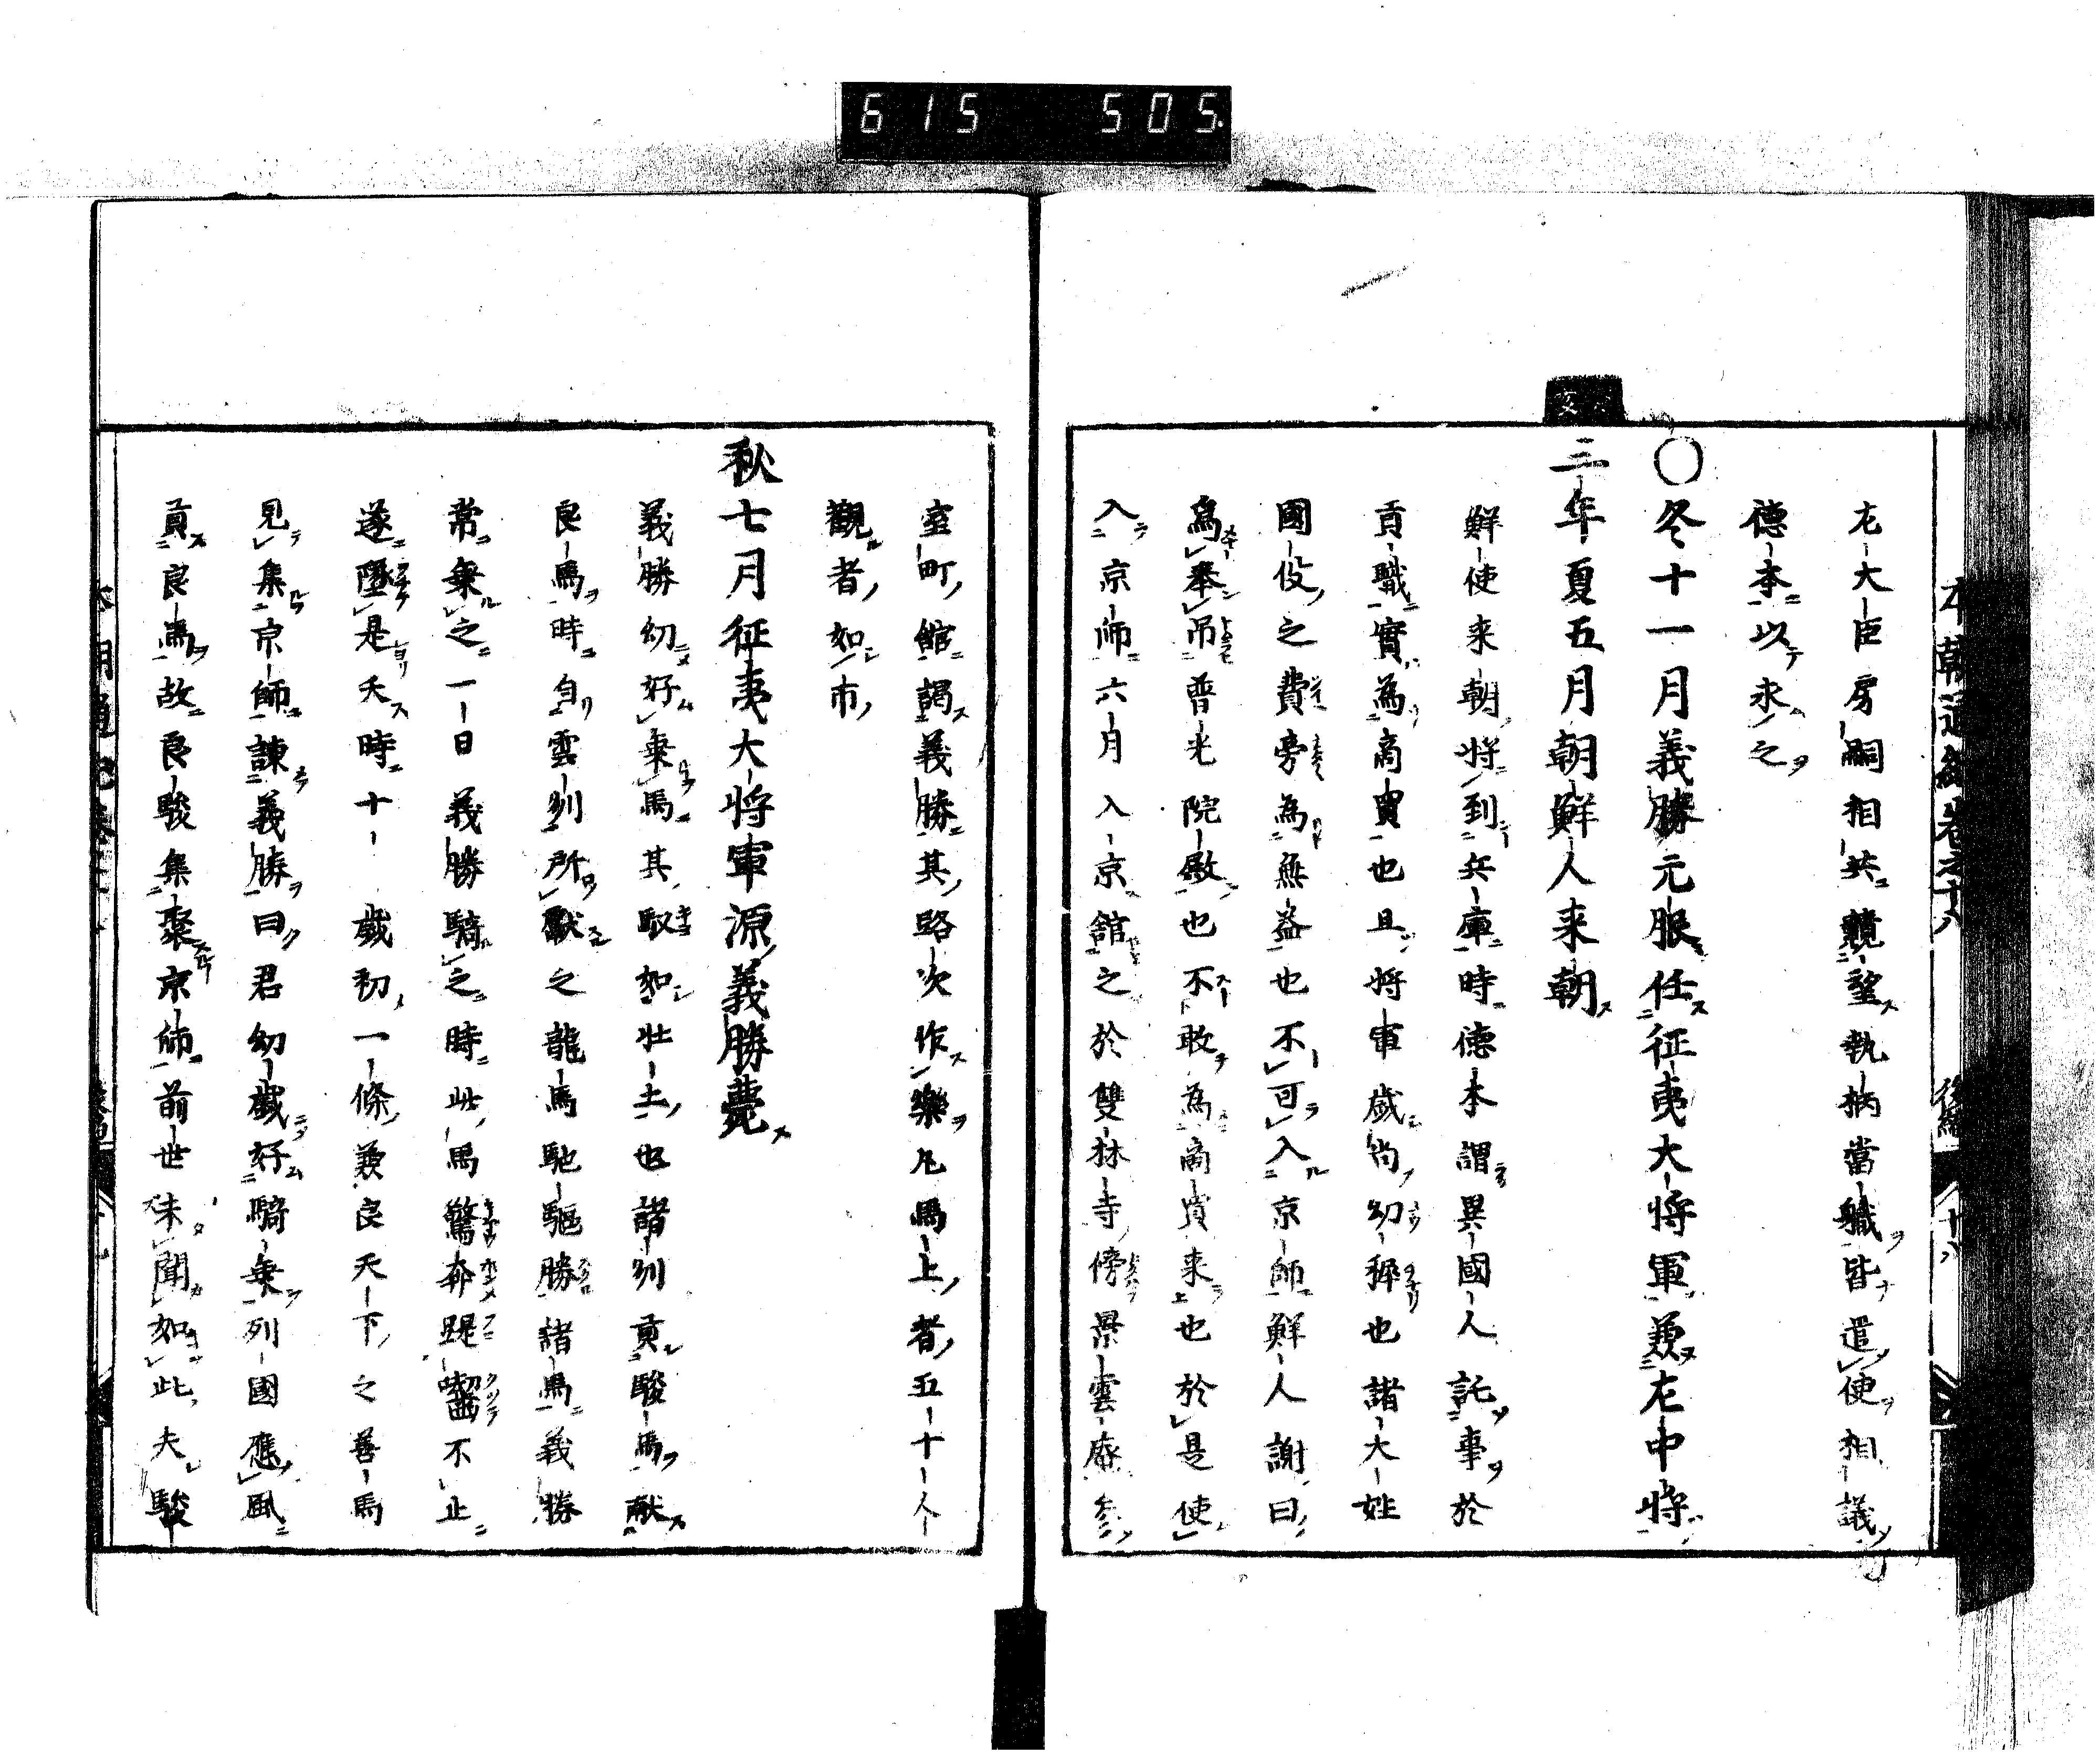 615 505.
本朝通紀卷之十八 後編 十八
左大臣房嗣相共競望執柄當職皆遣使相議
德本以求之
○冬十一月義勝元服任征夷大將軍兼左中將
三年夏五月朝鮮人来朝
鮮使来朝將到兵庫時德本謂異國人託事於
貢職實為商買也且將軍歳尚幼穉也諸大姓
國役之費旁為無益也不可入京師鮮人謝曰
為奉吊普光院殿也不敢為商賣来也於是使
入京師六月入京舘之於雙林寺傍景雲庵参
室町館謁義勝其路次作樂凡馬上者五十人
觀者如市
秋七月征夷大將軍源義勝薨
義勝幼好乗馬其馭如壮士也諸州貢駿馬献
良馬時自雲州所獻之龍馬馳驅勝諸馬義勝
常乗之一日義勝騎之時此馬驚奔踶齧不止
遂墜是夭時十歳初一條兼良天下之善馬
見集京師諫義勝曰君幼歳好騎乗列國應風
貢良馬故良駿集聚京師前世未聞如此夫駿